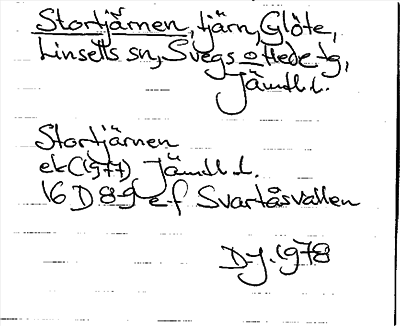 Stortjärnen, tjärn, Glöte,
Linsells sn, Svegs o Hede tg,
Jämtl.l.
Stortjärnen
ek (1977), Jämtl.l.
16 D 8-9 e-f Svartåsvallen
DJ. 1978